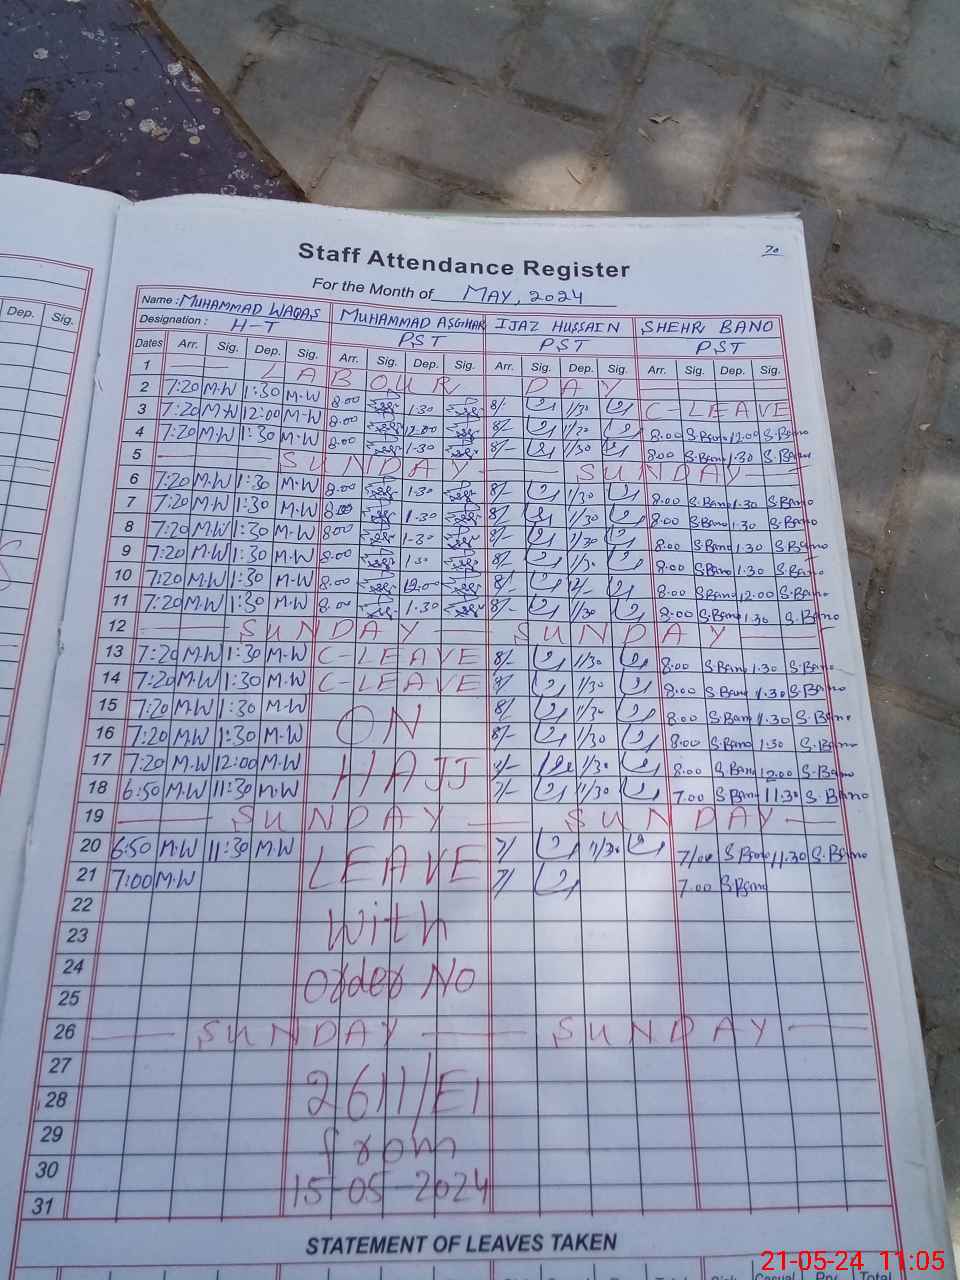 Dep. Sig.
70
Staff Attendance Register
For the Month of MAY, 2024
Name: MUHAMMAD WAQAS MUHAMMAD ASGHAR IJAZ HUSSAIN SHEHR BANO
Designation: H-T PST PST PST
Dates Arr. Sig. Dep. Sig. Arr. Sig. Dep. Sig. Arr. Sig. Dep. Sig. Arr. Sig. Dep. Sig.
1 LABOUR DAY
2 7:20 M.W 1:30 M-W 8.00 1.30 8/- 1/30 C-LEAVE
3 7:20 M.W 12:00 M-W 8.00 12.00 8/- 8.00 S.Bano 12.00 S.Bano
4 7:20 M.W 1:30 M-W 8.00 1.30 8/- 1/30 8.00 S.Bano 1.30 S.Bano
5 SUNDAY SUNDAY
6 7:20 M.W 1:30 M-W 8.00 1.30 8/- 1/30 8.00 S.Bano 1.30 S.Bano
7 7:20 M.W 1:30 M-W 8.00 1.30 8/- 1/30 8.00 S.Bano 1.30 S.Bano
8 7:20 M.W 1:30 M-W 8.00 1.30 8/- 1/30 8.00 S.Bano 1.30 S.Bano
9 7:20 M.W 1:30 M-W 8.00 1.30 8/- 1/30 8.00 S.Bano 1.30 S.Bano
10 7:20 M.W 1:30 M-W 8.00 12.00 8/- 12/- 8.00 S.Bano 12.00 S.Bano
11 7:20 M.W 1:30 M-W 8.00 1.30 8/- 1/30 8.00 S.Bano 1.30 S.Bano
12 SUNDAY SUNDAY
13 7:20 M.W 1:30 M-W C-LEAVE 8/- 1/30 8.00 S.Bano 1.30 S.Bano
14 7:20 M.W 1:30 M-W C-LEAVE 8/- 1/30 8.00 S.Bano 1.30 S.Bano
15 7:20 M.W 1:30 M-W ON 8/- 1/30 8.00 S.Bano 1.30 S.Bano
16 7:20 M.W 1:30 M-W 8/- 1/30 8.00 S.Bano 1.30 S.Bano
17 7:20 M.W 12:00 M-W HAJJ 1/30 8.00 S.Bano 12.00 S.Bano
18 6:50 M.W 11:30 M-W 7/- 11/30 7.00 S.Bano 11.30 S.Bano
19 SUNDAY SUNDAY
20 6:50 M.W 11:30 M.W LEAVE 7/ 11/30 7/00 S.Bano 11.30 S.Bano
21 7:00 M.W 7/ 7.00 S.Bano
22 with
23
24 order No
25
26 SUNDAY SUNDAY
27
28 2611/EI
29 from
30
31 15-05-2024
STATEMENT OF LEAVES TAKEN
Casual Total
21-05-24 11:05